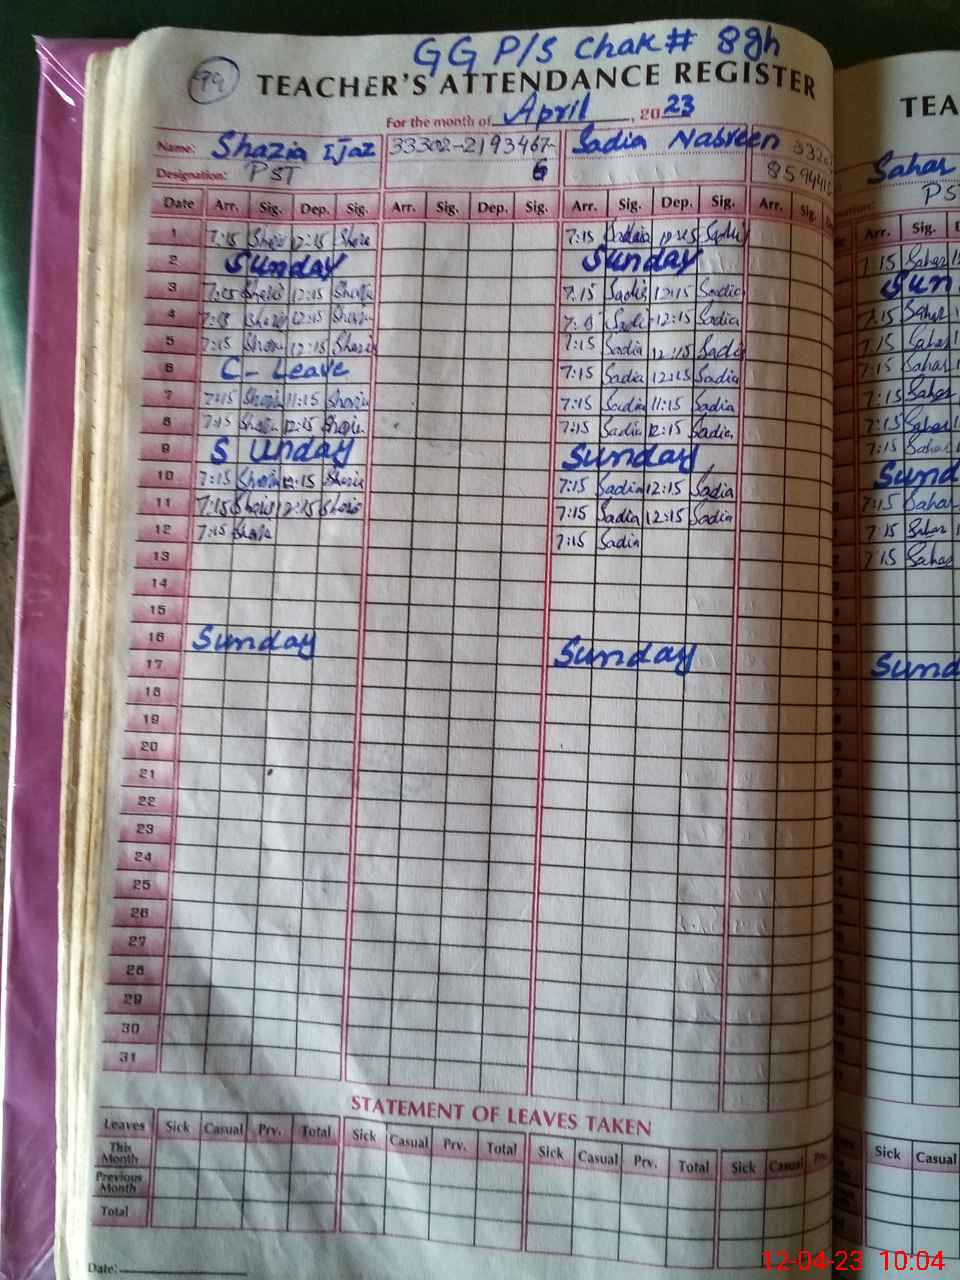 GG P/S Chak # 8gh
99
TEACHER'S ATTENDANCE REGISTER
For the month of April, 2023
Name: Shazia Ijaz 33302-2193467-6 Sadia Nasreen
Designation: PST
Date Arr. Sig. Dep. Sig. Arr. Sig. Dep. Sig. Arr. Sig. Dep. Sig. Arr. Sig.
1 7:15 12:15 7:15 Sadia 12:15 Sadia
2 Sunday Sunday
3 7:15 12:15 7:15 Sadia 12:15 Sadia
4 7:15 12:15 7:15 Sadia 12:15 Sadia
5 7:15 12:15 7:15 Sadia 12:15 Sadia
6 C-Leave 7:15 Sadia 12:15 Sadia
7 7:15 Shazia 11:15 Shazia 7:15 Sadia 11:15 Sadia
8 7:15 Shazia 12:15 Shazia 7:15 Sadia 12:15 Sadia
9 Sunday Sunday
10 7:15 Shazia 12:15 Shazia 7:15 Sadia 12:15 Sadia
11 7:15 Shazia 12:15 Shazia 7:15 Sadia 12:15 Sadia
12 7:15 Shazia 7:15 Sadia
13
14
15
16 Sunday Sunday
17
18
19
20
21
22
23
24
25
26
27
28
29
30
31
STATEMENT OF LEAVES TAKEN
Leaves Sick Casual Prv. Total Sick Casual Prv. Total Sick Casual Prv. Total Sick Casual
This Month
Previous Month
Total
Date:
TEA
Sahar
PS
Arr. Sig.
7:15 Sahar
Sun
7:15 Sahar
7:15 Sahar
7:15 Sahar
7:15 Sahar
7:15 Sahar
7:15 Sahar
Sund
7:15 Sahar
7:15 Sahar
7:15 Sahar
Sund
Sick Casual
12-04-23 10:04